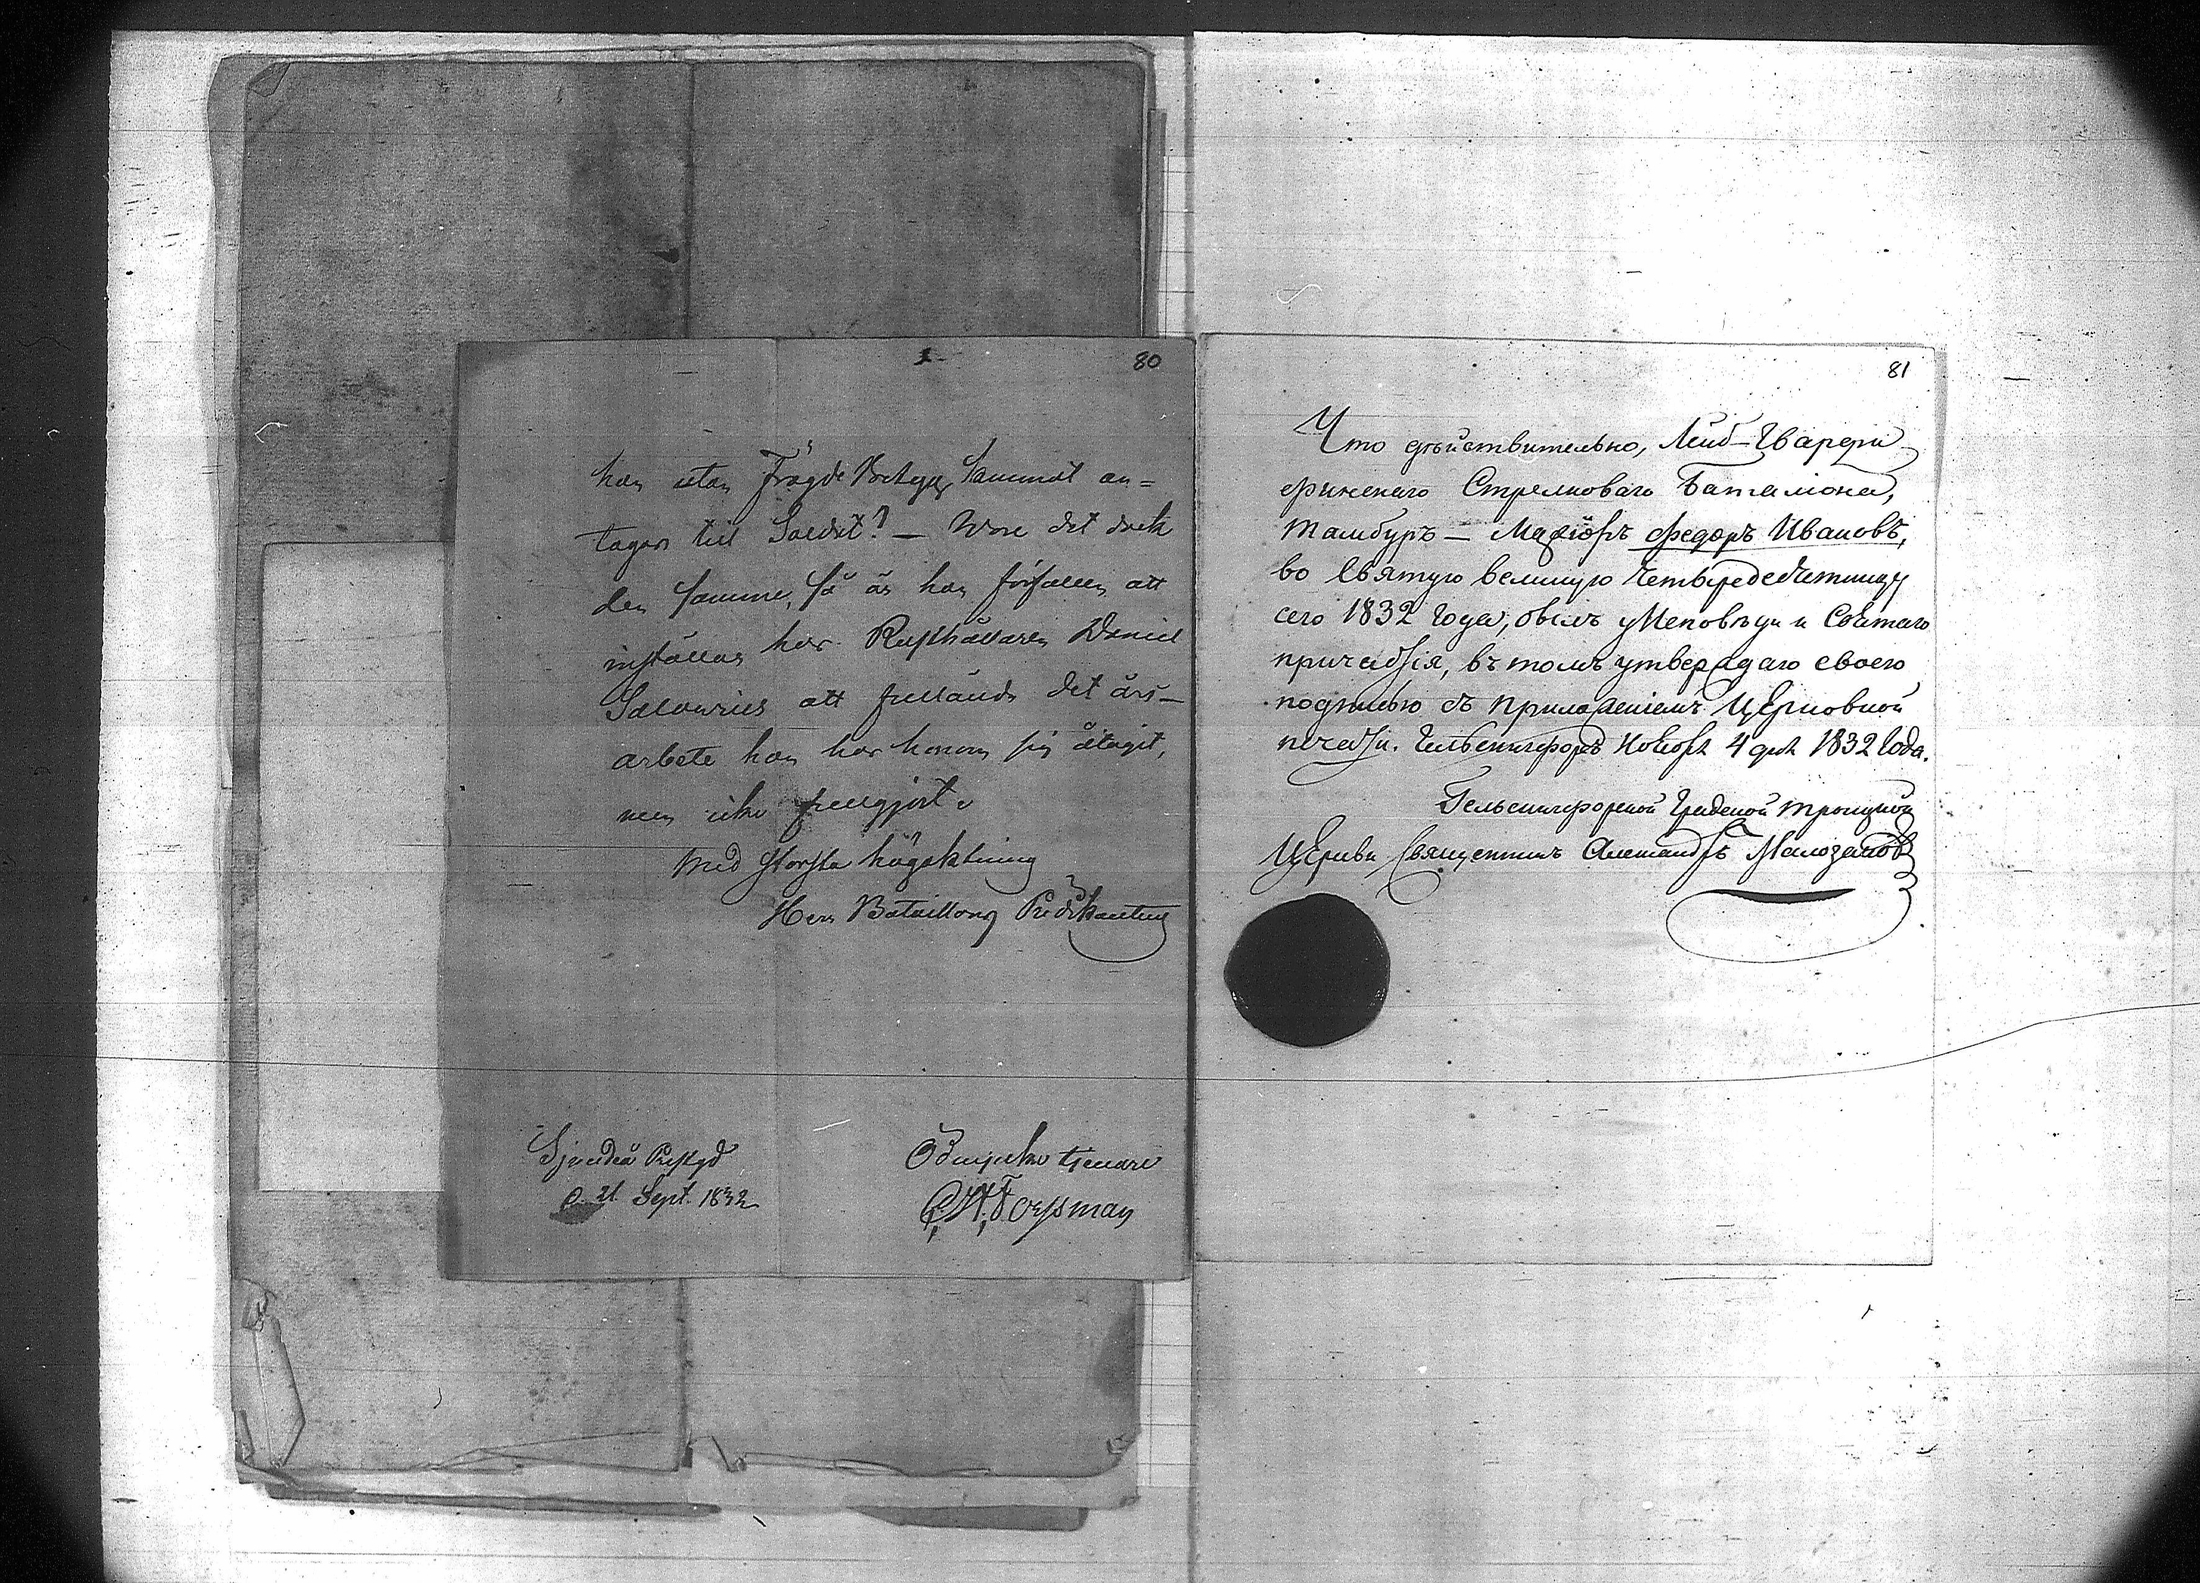 80
han utan Frägde Betyg kunnat an=
tagas till Soldat? — Wore det dock
den samme, så är han förfallen att
inställas hos Rusthållaren Daniel
att fullända det års-
arbete han hos honom sig åtagit,
men icke fullgjort.
Med största högaktning
Herr Bataillons Predikantens
Sjundeå Prestgd
d. 21 Sept. 1832
Ödmjuke tjenare
C. H. Forssman
81
Что действительно, Лейб-Гвардіи
Финскаго Стрелковаго Баталіона,
Тамбуръ — Мажіоръ Федоръ Ивановъ,
во Святую великую Четыредесятницу
сего 1832 Года, былъ у Исповѣди и Святаго
причастія, въ томъ утверждаю своею
подписью съ приложеніемъ Церковной
печати. Гельсингфорсъ Ноября 4 дня 1832 Года.
Гельсингфорской Градской Троицкой
Церкви Священникъ Александръ Малозаповъ